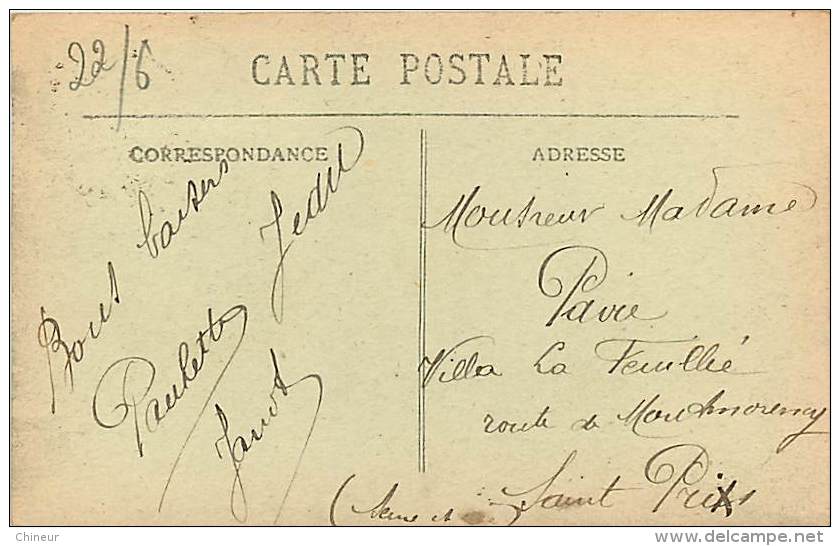 22/6
CARTE POSTALE
CORRESPONDANCE
Bons baisers
Paulette Jean
Janot
ADRESSE
Monsieur Madame
Pavie
Villa La Feuillée
route de Montmorency
Saint Prix
(Seine et
Chineur
www.delcampe.net